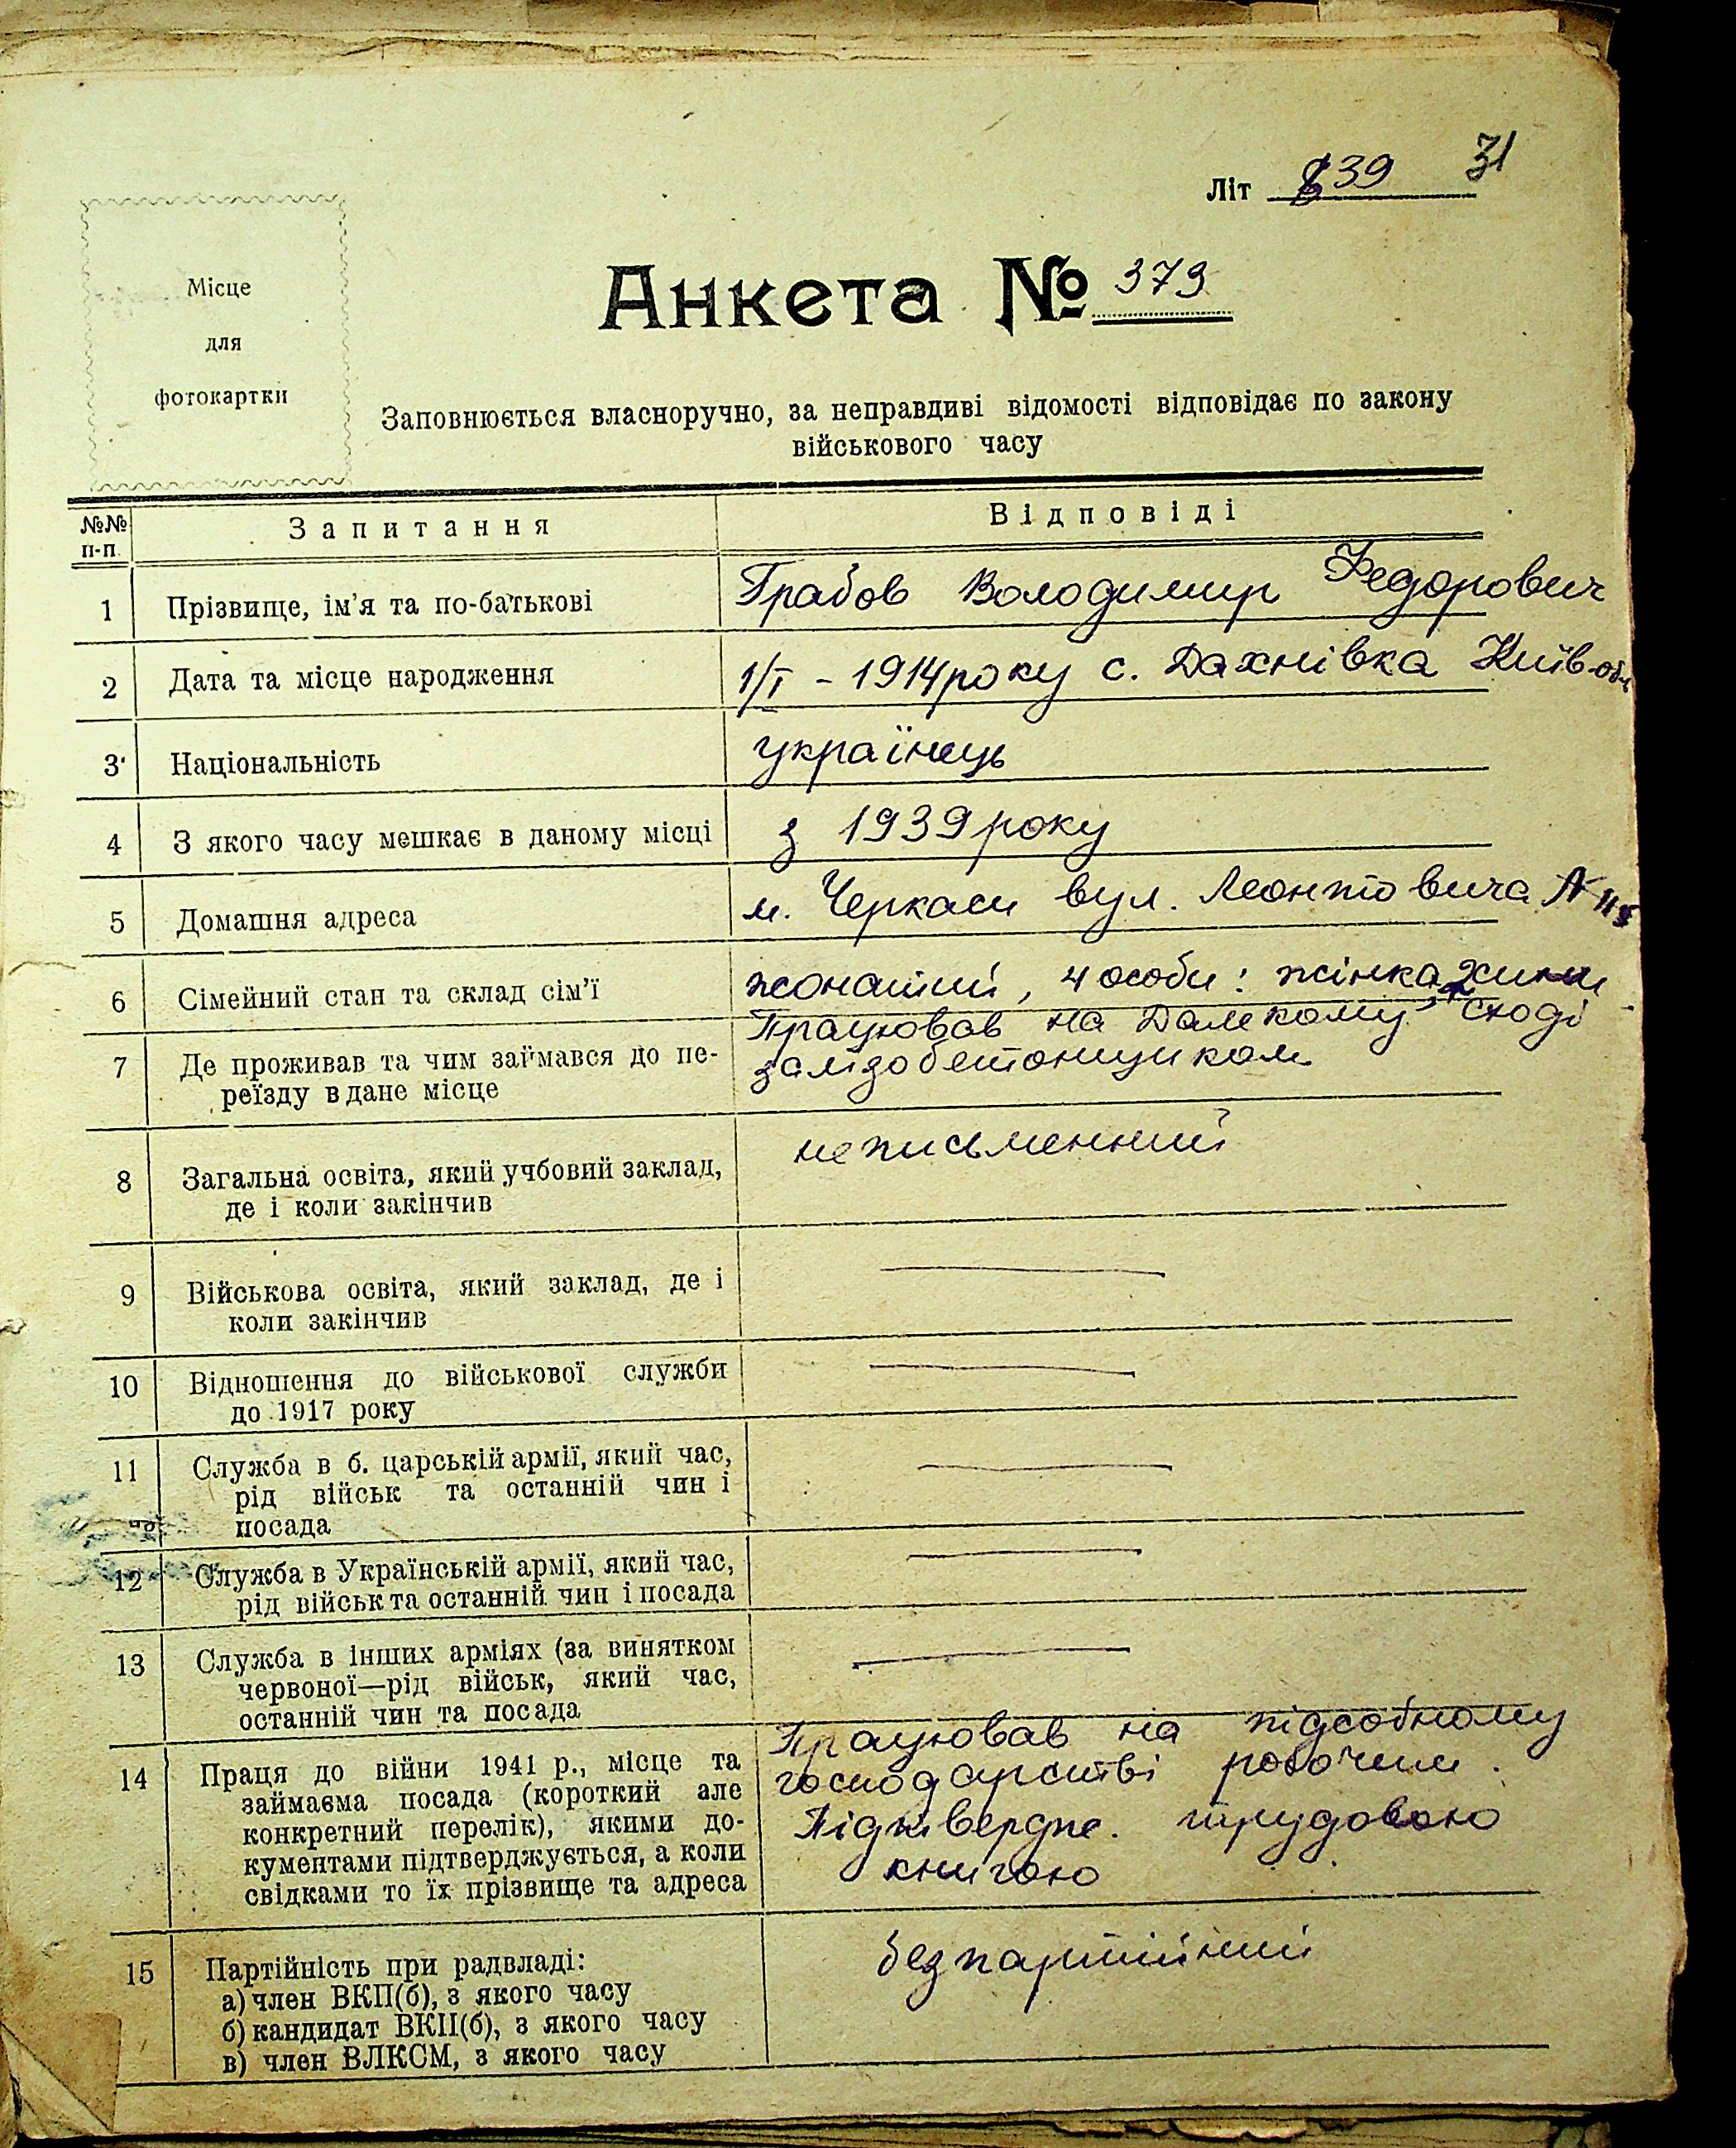 31
Літ 39
Місце
для
фотокартки
Анкета № 373
Заповнюється власноручно, за неправдиві відомості відповідає по закону
військового часу
№№ п-п. Запитання Відповіді
1 Прізвище, ім'я та по-батькові Грабов Володимир Федорович
2 Дата та місце народження 1/I - 1914 року с. Дахнівка Київ. обл
3 Національність українець
4 З якого часу мешкає в даному місці з 1939 року
5 Домашня адреса м. Черкаси вул. Леонтовича №
6 Сімейний стан та склад сім'ї жонатий, 4 особи: жінка
7 Де проживав та чим займався до пе-
реїзду в дане місце
Працював на Далекому сході
залізобетонщиком
8 Загальна освіта, який учбовий заклад,
де і коли закінчив
неписьменний
9 Військова освіта, який заклад, де і
коли закінчив
10 Відношення до військової служби
до 1917 року
11 Служба в б. царській армії, який час,
рід військ та останній чин і
посада
12 Служба в Українській армії, який час,
рід військ та останній чин і посада
13 Служба в інших арміях (за винятком
червоної—рід військ, який час,
останній чин та посада
14 Праця до війни 1941 р., місце та
займаєма посада (короткий але
конкретний перелік), якими до-
кументами підтверджується, а коли
свідками то їх прізвище та адреса
Працював на підсобному
господарстві робочим.
Підтвердже. трудовою
книгою
15 Партійність при радвладі:
а) член ВКП(б), з якого часу
б) кандидат ВКП(б), з якого часу
в) член ВЛКСМ, з якого часу
безпартійний